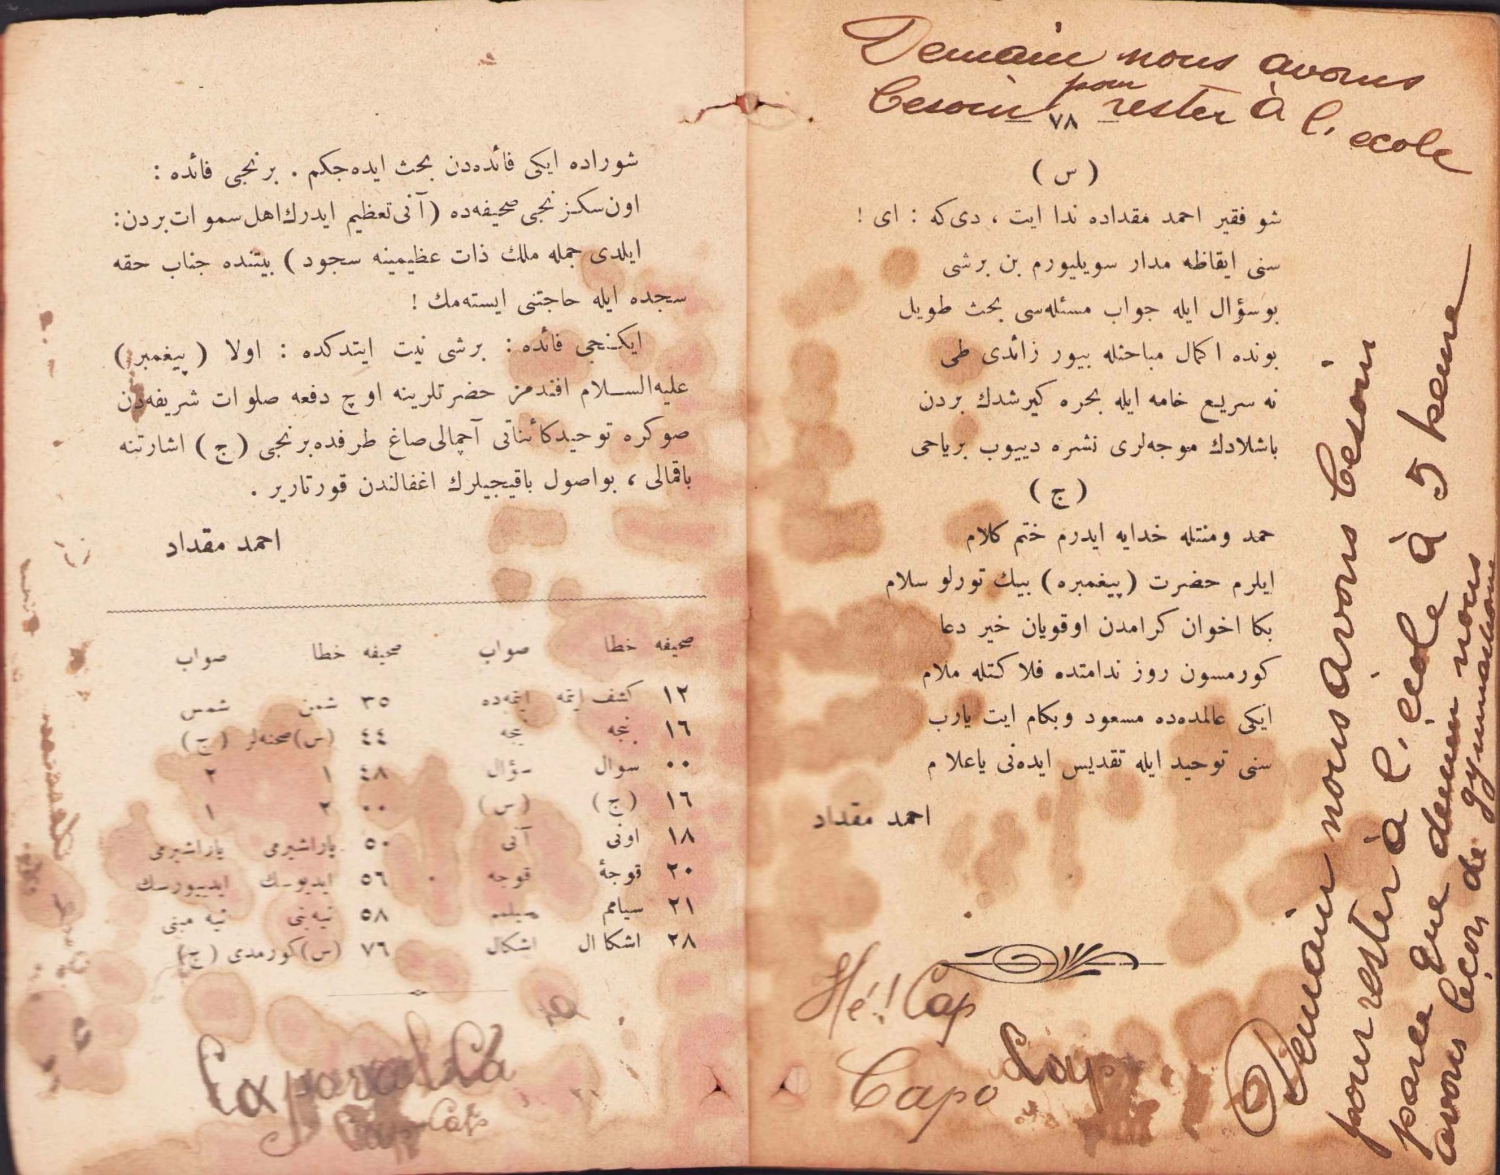 Demain nous avons
besoin pour rester à l'ecole
٧٨
( س )
شو فقیر احمد مقداده ندا ایت ، دی‌که : ای !
سنی ایقاظه مدار سویلیورم بن برشی
بوسؤال ایله جواب مسئله‌سی بحث طویل
بونده اکمال مباحثله بیور زائدی طی
نه سریع خامه ایله بحره کیرشدك بردن
باشلادك موجه‌لری نشره دییوب بریاحی
( ج )
حمد ومنتله خدایه ایدرم ختم کلام
ایلرم حضرت (پیغمبره) بیك تورلو سلام
بکا اخوان کرامدن اوقویان خیر دعا
کورمسون روز ندامتده فلاکتله ملام
ایکی عالمده‌ده مسعود وبکام ایت یارب
سنی توحید ایله تقدیس ایده‌نی یاعلام
احمد مقداد
Hé!! Cap
Capo Cap
Demain nous avons besoin
pour rester à l'ecole à 5 heure
parce que demain nous
avons leçon de gymnastique
شوراده ایکی فائده‌دن بحث ایده‌جکم . برنجی فائده :
اون‌سکزنجی صحیفه‌ده (آنی‌تعظیم ایدرك‌اهل‌سموات‌بردن:
ایلدی جمله ملك ذات عظیمینه سجود) بیتنده جناب حقه
سجده ایله حاجتنی ایسته‌مك !
ایکنجی فائده : برشی نیت ایتدکده : اولا (پیغمبر)
علیه‌السلام افندمز حضرتلرینه اوچ دفعه صلوات شریفه‌دن
صوکره توحیدکائناتی آچمالی‌صاغ طرفده‌برنجی (ج) اشارتنه
باقمالی ، بواصول باقیجیلرك اغفالندن قورتاریر .
احمد مقداد
صحیفه خطا صواب صحیفه خطا صواب
١٢ کشف ایتمه ایتمه‌ده ٣٥ شمن شمس
١٦ نجه ٤٤ (س)صحنه‌لر (ج)
٠٠ سوال سؤال ٤٨ ١ ٢
١٦ (ج) (س) ٠٠ ٢ ١
١٨ اونی آنی ٥٠ یاراشیرمی یاراشیرمی
٢٠ قوجۀ قوجه ٥٦ ایدیورسك
٢١ ٥٨
٢٨ اشکا ال اشکال ٧٦ (س)کورمدی (ج)
Caporal Ca
Cap Cap